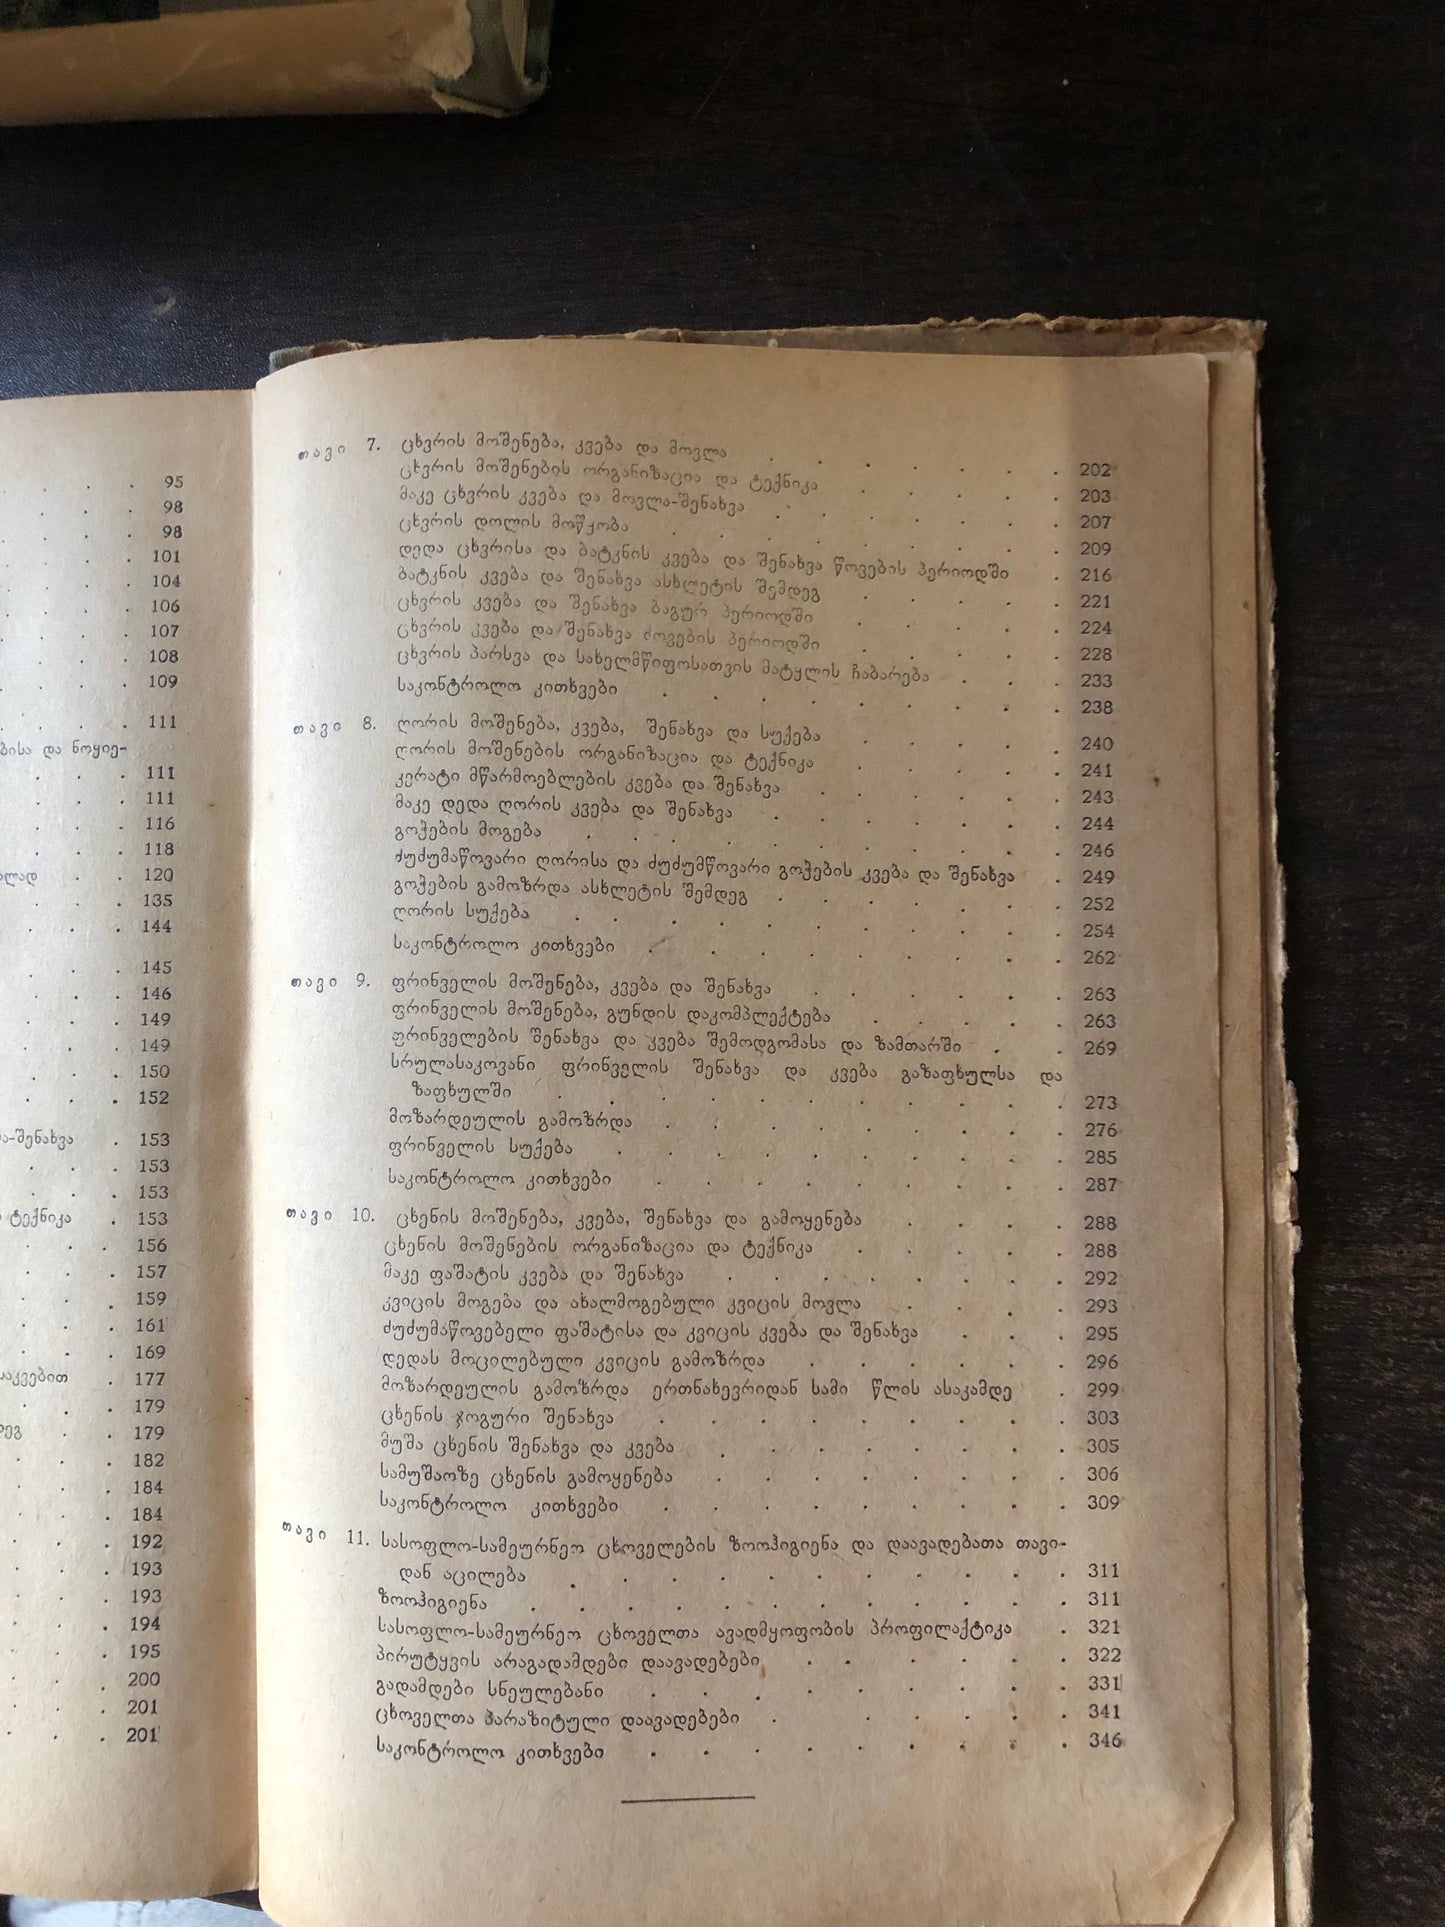 95
98
98
101
104
106
107
108
109
111
ბისა და ნოყიე-
111
111
116
118
120
135
144
145
146
149
149
150
152
ა-შენახვა . 153
153
153
ტექნიკა . 153
156
157
159
161
169
საკვებით . 177
179
179
182
184
184
192
193
193
194
195
200
201
201
თავი 7. ცხვრის მოშენება, კვება და მოვლა . . . . . . . 202
ცხვრის მოშენების ორგანიზაცია და ტექნიკა . . . . . 203
მაკე ცხვრის კვება და მოვლა-შენახვა . . . . . . 207
ცხვრის დოლის მოწყობა . . . . . . . . . 209
დედა ცხვრისა და ბატკნის კვება და შენახვა წოვების პერიოდში . 216
ბატკნის კვება და შენახვა ასხლეტის შემდეგ . . . . . 221
ცხვრის კვება და შენახვა ბაგურ პერიოდში . . . . . 224
ცხვრის კვება და შენახვა ძოვების პერიოდში . . . . . 228
ცხვრის პარსვა და სახელმწიფოსათვის მატყლის ჩაბარება . . . 233
საკონტროლო კითხვები . . . . . . . . . 238
თავი 8. ღორის მოშენება, კვება, შენახვა და სუქება . . . . . 240
ღორის მოშენების ორგანიზაცია და ტექნიკა . . . . . 241
კერატი მწარმოებლების კვება და შენახვა . . . . . . 243
მაკე დედა ღორის კვება და შენახვა . . . . . . . 244
გოჭების მოგება . . . . . . . . . . 246
ძუძუმაწოვარი ღორისა და ძუძუმწოვარი გოჭების კვება და შენახვა . 249
გოჭების გამოზრდა ასხლეტის შემდეგ . . . . . . . 252
ღორის სუქება . . . . . . . . . . . 254
საკონტროლო კითხვები . . . . . . . . 262
თავი 9. ფრინველის მოშენება, კვება და შენახვა . . . . . . 263
ფრინველის მოშენება, გუნდის დაკომპლექტება . . . . . 263
ფრინველების შენახვა და კვება შემოდგომასა და ზამთარში . . 269
სრულასაკოვანი ფრინველის შენახვა და კვება გაზაფხულსა და
ზაფხულში . . . . . . . . . . . 273
მოზარდეულის გამოზრდა . . . . . . . . . 276
ფრინველის სუქება . . . . . . . . . . 285
საკონტროლო კითხვები . . . . . . . . . 287
თავი 10. ცხენის მოშენება, კვება, შენახვა და გამოყენება . . . . 288
ცხენის მოშენების ორგანიზაცია და ტექნიკა . . . . . 288
მაკე ფაშატის კვება და შენახვა . . . . . . . . 292
კვიცის მოგება და ახალმოგებული კვიცის მოვლა . . . . 293
ძუძუმაწოვებელი ფაშატისა და კვიცის კვება და შენახვა . . . 295
დედას მოცილებული კვიცის გამოზრდა . . . . . . 296
მოზარდეულის გამოზრდა ერთნახევრიდან სამი წლის ასაკამდე . 299
ცხენის ჯოგური შენახვა . . . . . . . . . 303
მუშა ცხენის შენახვა და კვება . . . . . . . . 305
სამუშაოზე ცხენის გამოყენება . . . . . . . . 306
საკონტროლო კითხვები . . . . . . . . . 309
თავი 11. სასოფლო-სამეურნეო ცხოველების ზოოჰიგიენა და დაავადებათა თავი-
დან აცილება . . . . . . . . . . . 311
ზოოჰიგიენა . . . . . . . . . . . . 311
სასოფლო-სამეურნეო ცხოველთა ავადმყოფობის პროფილაქტიკა . 321
პირუტყვის არაგადამდები დაავადებები . . . . . . 322
გადამდები სნეულებანი . . . . . . . . . 331
ცხოველთა პარაზიტული დაავადებები . . . . . . . 341
საკონტროლო კითხვები . . . . . . . . . 346